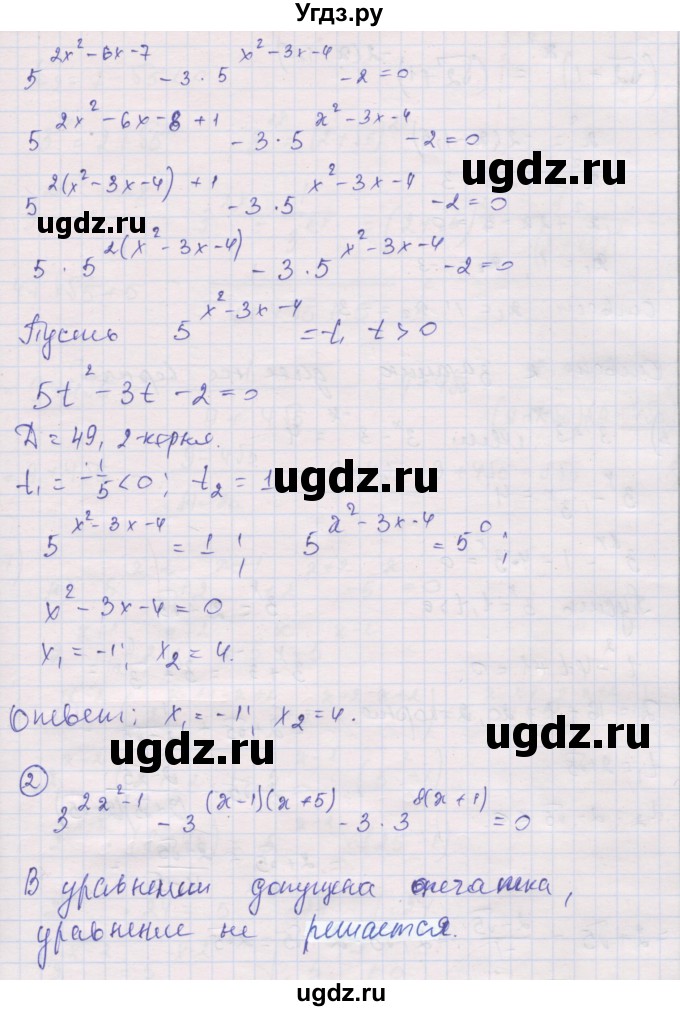 Угдз.ру
5^(2x²-6x-7) - 3·5^(x²-3x-4) - 2 = 0
5^(2x²-6x-8+1) - 3·5^(x²-3x-4) - 2 = 0
ugdz.ru
5^(2(x²-3x-4)+1) - 3·5^(x²-3x-4) - 2 = 0
ugdz.ru
5·5^(2(x²-3x-4)) - 3·5^(x²-3x-4) - 2 = 0
Пусть 5^(x²-3x-4) = t, t > 0
5t² - 3t - 2 = 0
Д = 49, 2 корня.
t₁ = -1/5 < 0; t₂ = 1
ugdz.ru
5^(x²-3x-4) = 1; 5^(x²-3x-4) = 5⁰;
x² - 3x - 4 = 0
x₁ = -1; x₂ = 4.
Ответ: x₁ = -1; x₂ = 4.
ugdz.ru
ugdz.ru
② 3^(2x²-1) - 3^((x-1)(x+5)) - 3·3^(8(x+1)) = 0
В уравнении допущена опечатка,
уравнение не решается.
ugdz.ru
ugdz.ru